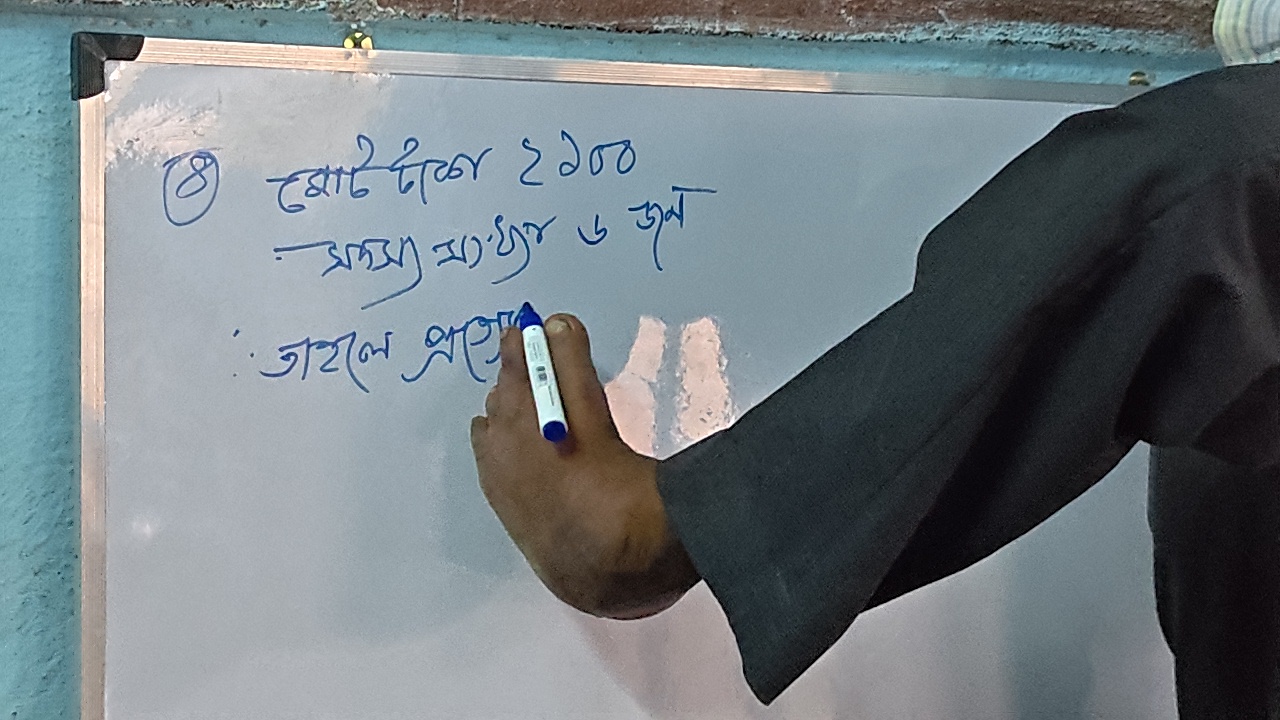 ৪ মোট টাকা ২১০০
সদস্য সংখ্যা ৬ জন
∴ তাহলে